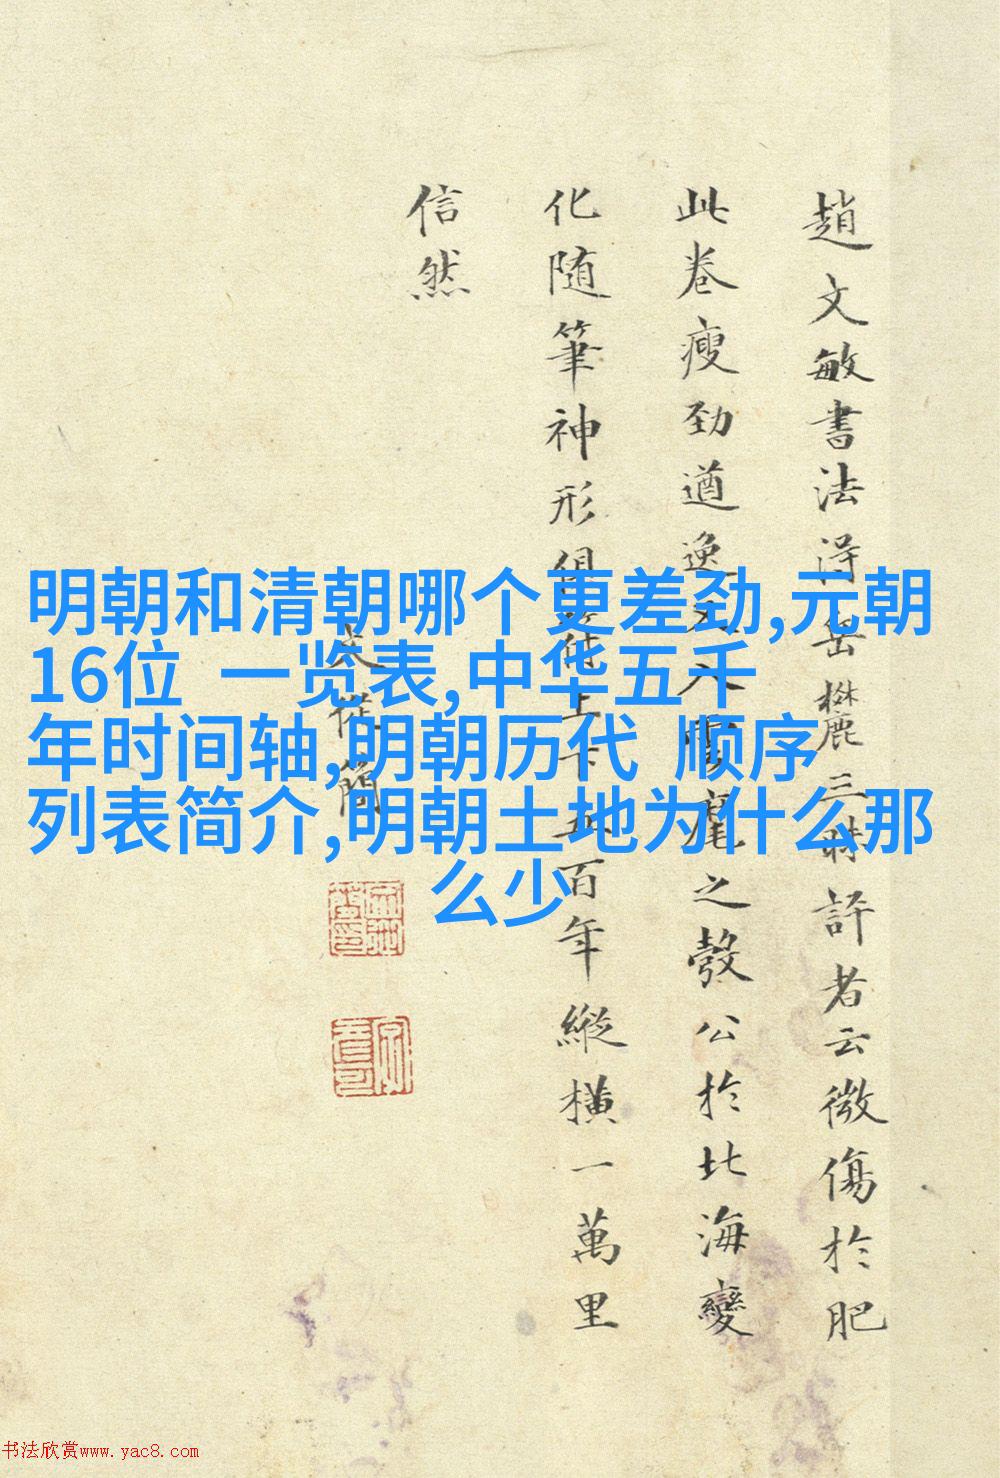 明朝和清朝哪个更差劲,元朝
16位 一览表,中华五千
年时间轴,明朝历代 顺序
列表简介,明朝土地为什么那
么少
趙文敏書法得岳麓三時許者云微傷於肥
此卷瘦勁遒逸又入雲麾之彀公於北海變
化随筆神形俱上下五百年縱橫一萬里
信然
書法欣赏www.yac8.com